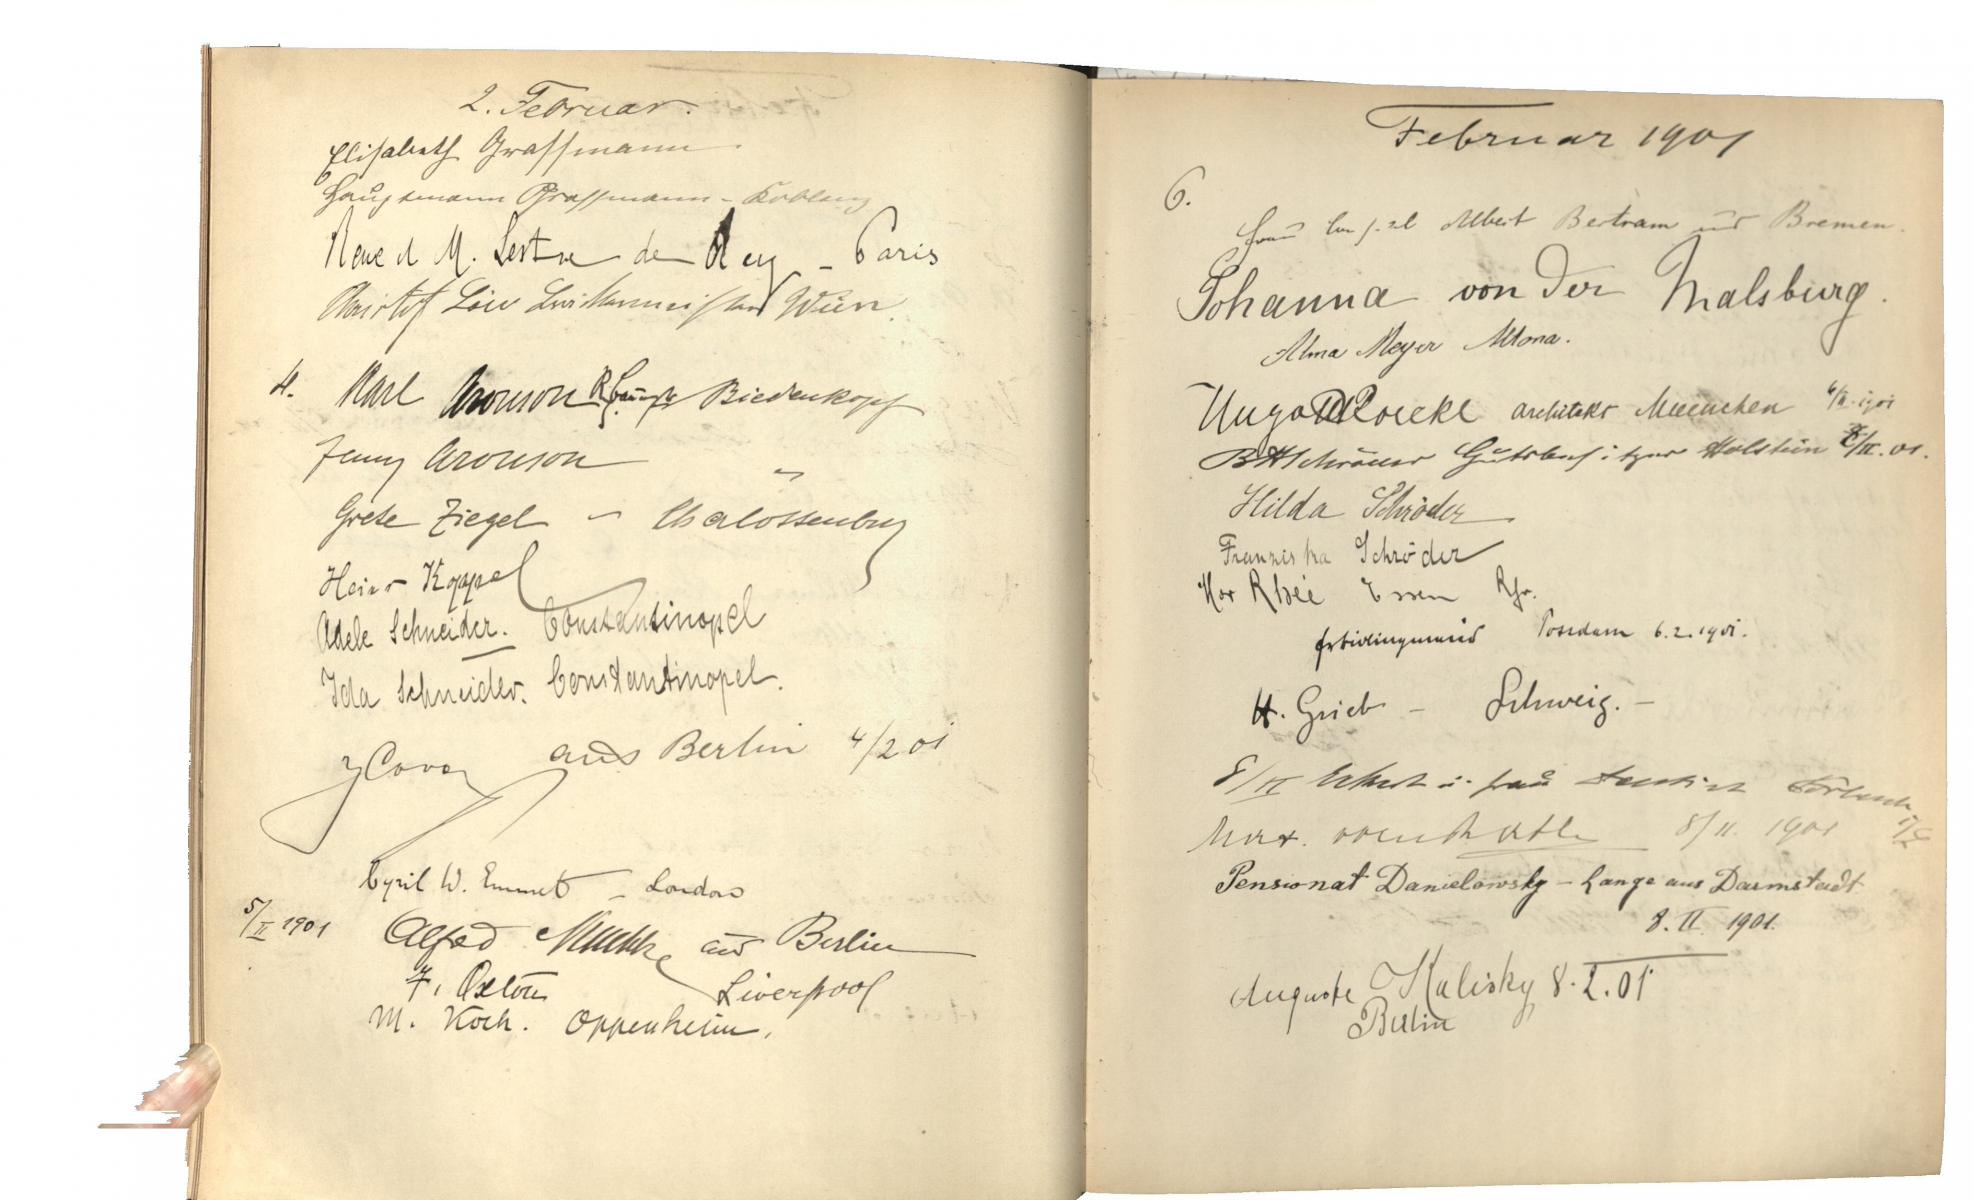 2. Februar.
Elisabeth Grassmann
Hauptmann Grassmann - Koblenz
René et M. de Rey - Paris
Christof Löw Wien.
4. Karl Aronson Biedenkopf
Jenny Aronson "
Grete Ziegel - Charlottenburg
Heinr Koppel
Adele Schneider. Constantinopel
Ida Schneider. Constantinopel.
aus Berlin 4/2 01
Cyril W. Emmet - London
5/II 1901 Alfred aus Berlin
F. Liverpool
M. Koch. Oppenheim.
Februar 1901
6.
Frau Albert Bertram aus Bremen.
Johanna von der Malsburg.
Alma Meyer Altona.
Hugo Roeckl architekt Muenchen 6/II. 1901
BHSchröder Gutsbesitzer Holstein /II. 01.
Hilda Schröder
Franziska Schröder
Essen Rhr.
Potsdam 6.2.1901.
H. Grieb - Schweiz. -
8/II u. Frau
Max. 8/II. 1901
Pensionat Danielowsky - Lange aus Darmstadt
8. II. 1901.
Auguste Kalisky 8.2.01
Berlin